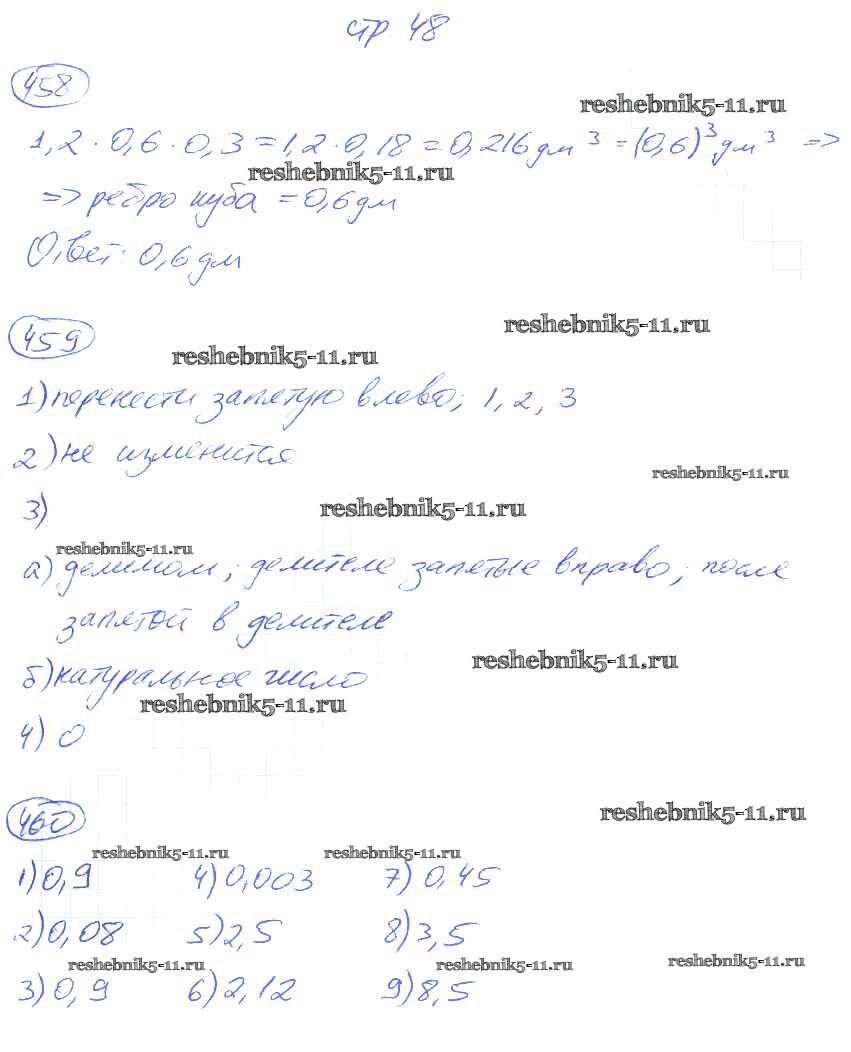 стр 48
458
reshebnik5-11.ru
1,2 · 0,6 · 0,3 = 1,2 · 0,18 = 0,216 дм³ = (0,6)³ дм³ =>
reshebnik5-11.ru
=> ребро куба = 0,6 дм
Ответ: 0,6 дм
reshebnik5-11.ru
459
reshebnik5-11.ru
1) перенести запятую влево; 1, 2, 3
2) не изменится
reshebnik5-11.ru
3)
reshebnik5-11.ru
reshebnik5-11.ru
а) делимом; делителе запятые вправо; после
запятой в делителе
reshebnik5-11.ru
б) натуральное число
reshebnik5-11.ru
4) 0
reshebnik5-11.ru
460
reshebnik5-11.ru reshebnik5-11.ru
1) 0,9 4) 0,003 7) 0,45
2) 0,08 5) 2,5 8) 3,5
reshebnik5-11.ru reshebnik5-11.ru reshebnik5-11.ru
3) 0,9 6) 2,12 9) 8,5